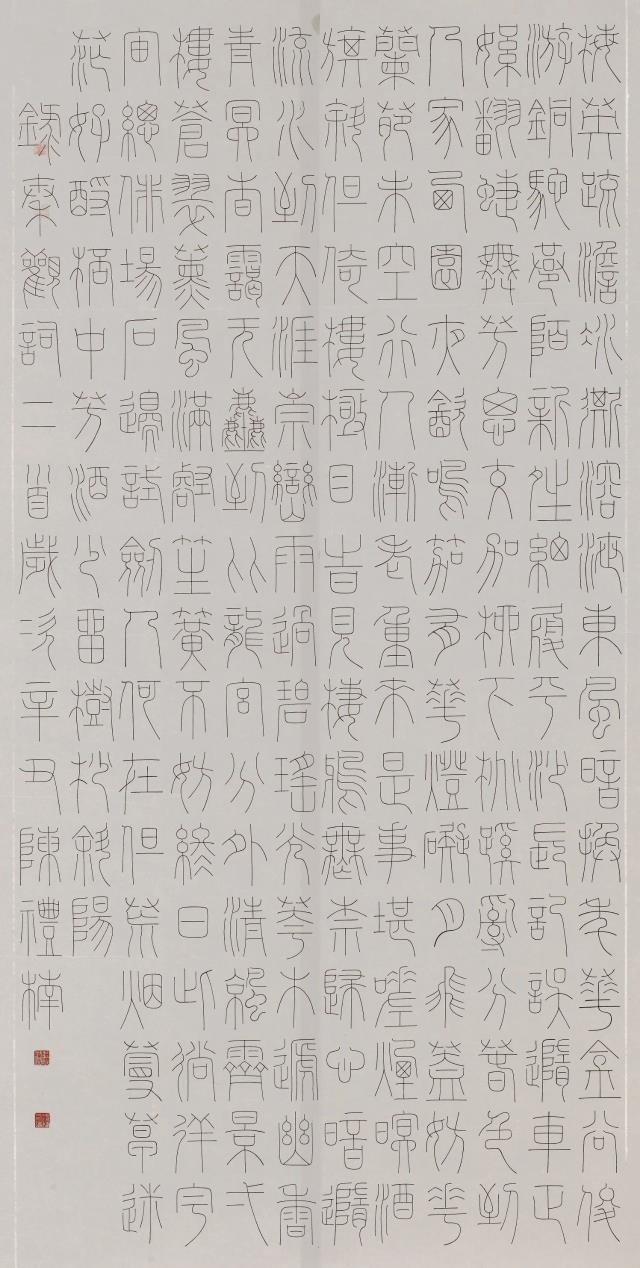 梅英疏澹冰澌溶洩東風暗換年華金谷俊
游銅駝巷陌新晴細履平沙長記誤隨車正
絮翻蜨舞芳思交加柳下桃蹊亂分春色到
人家西園夜飲鳴笳有華燈礙月飛蓋妨花
蘭苑未空行人漸老重來是事堪嗟煙暝酒
旗斜但倚樓極目時見棲鴉無奈歸心暗隨
流水到天涯崇巒雨過碧瑤光花木遞幽香
青冥杳靄无塵到比龍宮分外清涼霽景弌
樓蒼翠薰風滿壑笙簧不妨終日此徜徉宇
宙總俳場石邊試劍人何在但荒烟蔓草迷
茫好酌桮中芳酒少留樹杪斜陽
錄秦觀詞二首歲次辛丑陳禮楠